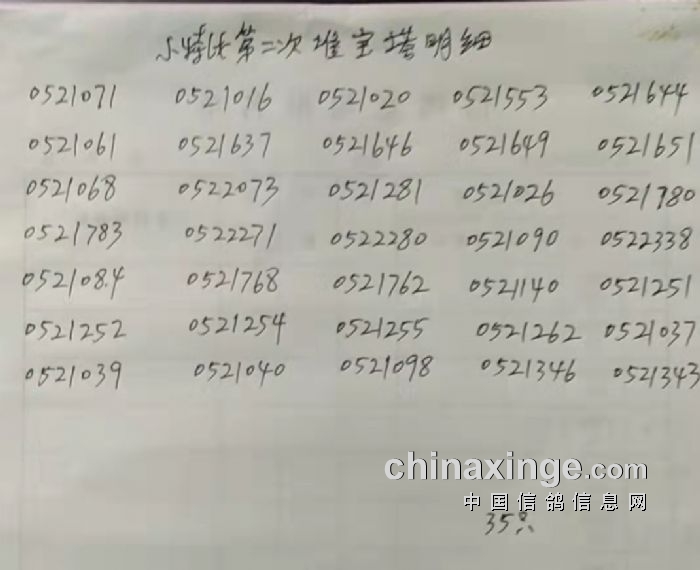 小特比第二次堆宝塔明细
0521071 0521016 0521020 0521553 0521644
0521061 0521637 0521646 0521649 0521651
0521068 0522073 0521281 0521026 0521780
0521783 0522271 0522280 0521090 0522338
0521084 0521768 0521762 0521140 0521251
0521252 0521254 0521255 0521262 0521037
0521039 0521040 0521098 0521346 0521343
chinaxinge.com
中国信鸽信息网
35只